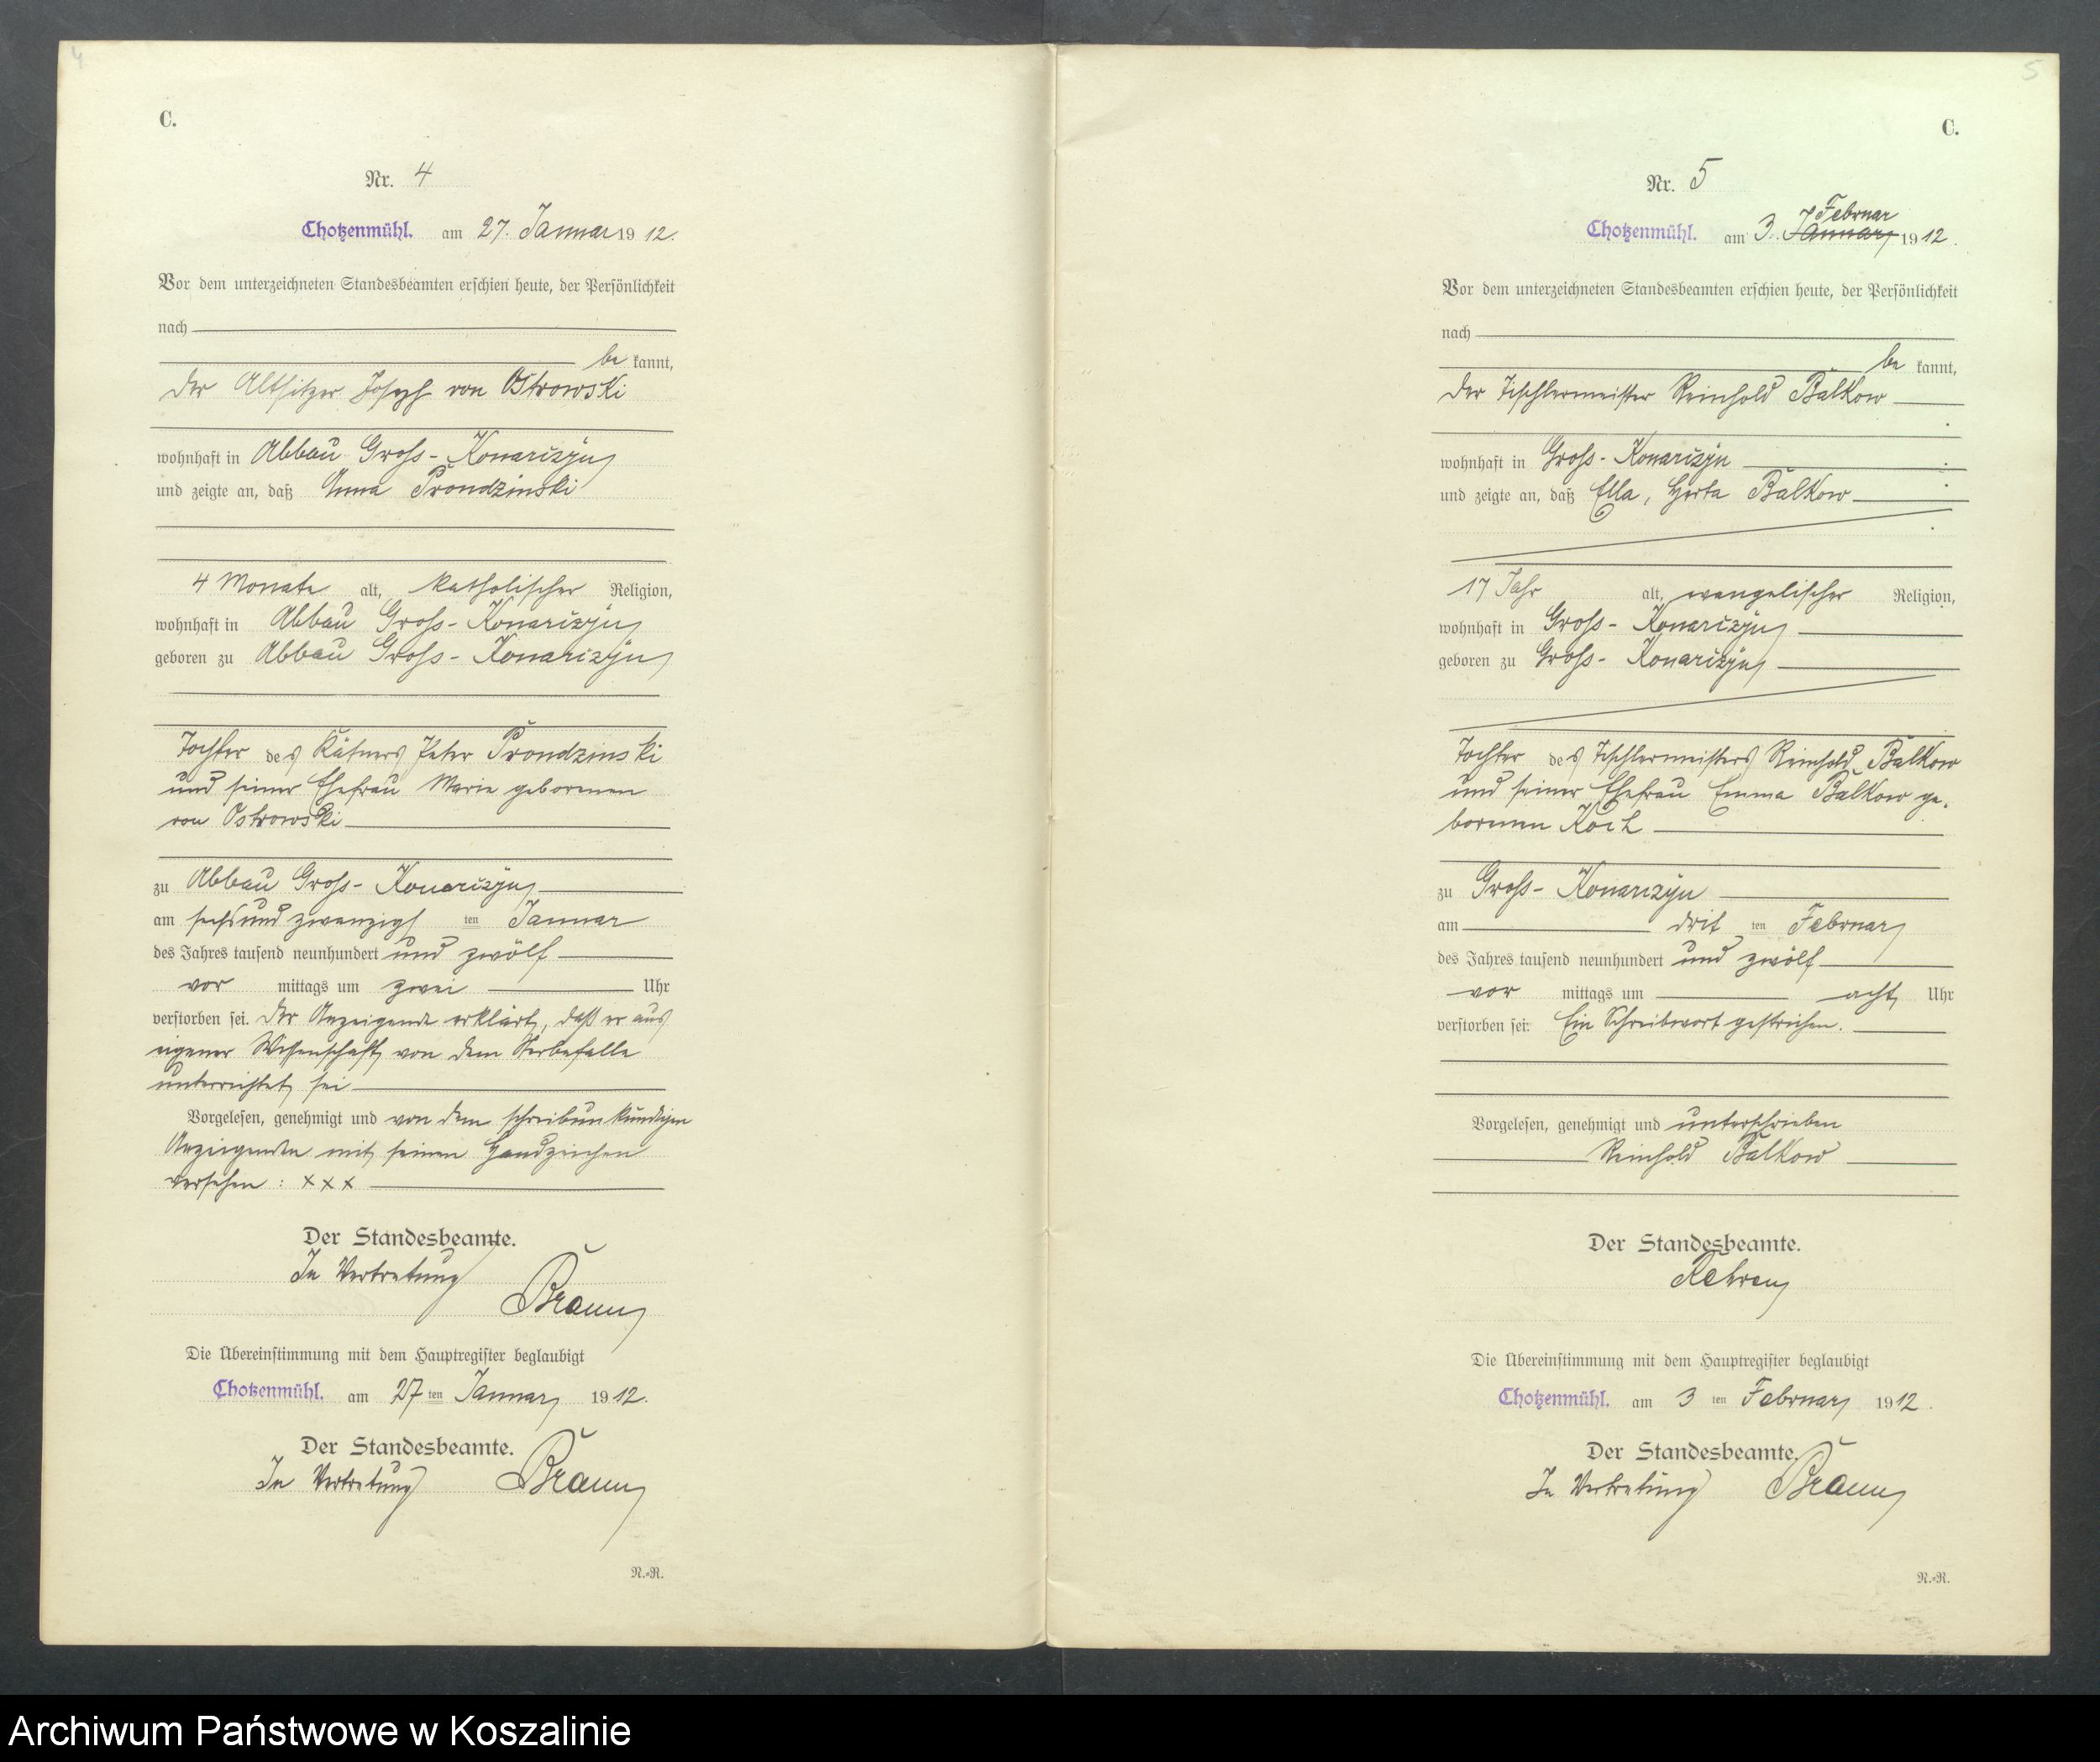 4
C.
Nr. 4
Chotzenmühl. am 27. Januar 1912.
Vor dem unterzeichneten Standesbeamten erschien heute, der Persönlichkeit
nach
be kannt,
der Altsitzer Joseph von Ostrowski
wohnhaft in Abbau Gross-Konarczyn
und zeigte an, daß Anna Prondzinski
4 Monate alt, katholischer Religion,
wohnhaft in Abbau Gross-Konarczyn
geboren zu Abbau Gross-Konarczyn
Tochter des Kätners Peter Prondzinski
und seiner Ehefrau Marie geborenen
von Ostrowski
zu Abbau Gross-Konarczyn
am sechsundzwanzigsten Januar
des Jahres tausend neunhundert und zwölf
vor mittags um zwei Uhr
verstorben sei. Der Anzeigende erklärt, daß er aus
eigener Wissenschaft von dem Sterbefalle
unterrichtet sei
Vorgelesen, genehmigt und von dem schreibunkundigen
Anzeigenden mit seinen Handzeichen
versehen: xxx
Der Standesbeamte.
In Vertretung
Braun
Die Übereinstimmung mit dem Hauptregister beglaubigt
Chotzenmühl. am 27 ten Januar 1912.
Der Standesbeamte.
In Vertretung Braun
N.-R.
5
C.
Nr. 5
Februar
Chotzenmühl. am 3. Januar 1912.
Vor dem unterzeichneten Standesbeamten erschien heute, der Persönlichkeit
nach
be kannt,
der Tischlermeister Reinhold Balkow
wohnhaft in Gross-Konarczyn
und zeigte an, daß Ella, Herta Balkow
17 Jahr alt, evangelischer Religion,
wohnhaft in Gross-Konarczyn
geboren zu Gross-Konarczyn
Tochter des Tischlermeisters Reinhold Balkow
und seiner Ehefrau Emma Balkow ge-
borenen Koch
zu Gross-Konarczyn
am drit ten Februar
des Jahres tausend neunhundert und zwölf
vor mittags um acht Uhr
verstorben sei. Ein Schreibwort gestrichen.
Vorgelesen, genehmigt und unterschrieben
Reinhold Balkow
Der Standesbeamte.
Die Übereinstimmung mit dem Hauptregister beglaubigt
Chotzenmühl. am 3 ten Februar 1912.
Der Standesbeamte.
In Vertretung Braun
N.-R.
Archiwum Państwowe w Koszalinie